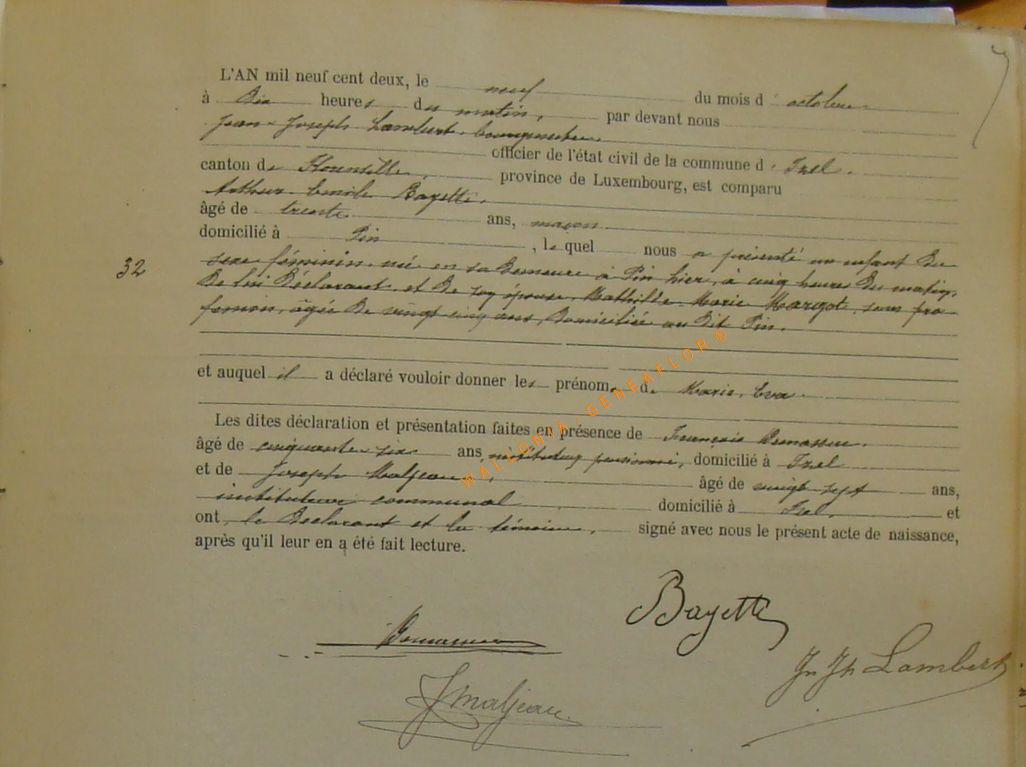 L'AN mil neuf cent deux, le neuf du mois d'octobre
à Dix heures du matin, par devant nous
Jean-Joseph Lambert, bourgmestre
officier de l'état civil de la commune d'Izel.
canton de Florenville, province de Luxembourg, est comparu
Arthur Emile Bayette,
âgé de trente ans, maçon
domicilié à Pin, lequel nous a présenté un enfant du
32
sexe féminin, née en sa demeure à Pin, hier, à cinq heures du matin,
De lui Déclarant, et De son épouse, Mathilde Marie Margot, sans pro
fession, âgée De vingt cinq ans, Domiciliée au Dit Pin.
et auquel il a déclaré vouloir donner les prénoms de Marie, Eva.
Les dites déclaration et présentation faites en présence de François
âgé de cinquante six ans, instituteur pensionné, domicilié à Izel
et de Joseph Maljean, âgé de vingt sept ans,
instituteur communal domicilié à Izel et
ont, le Déclarant et les témoins, signé avec nous le présent acte de naissance,
après qu'il leur en a été fait lecture.
Bayette
Jn Jh Lambert
J Maljean
WALLONIA GENEAFLORE